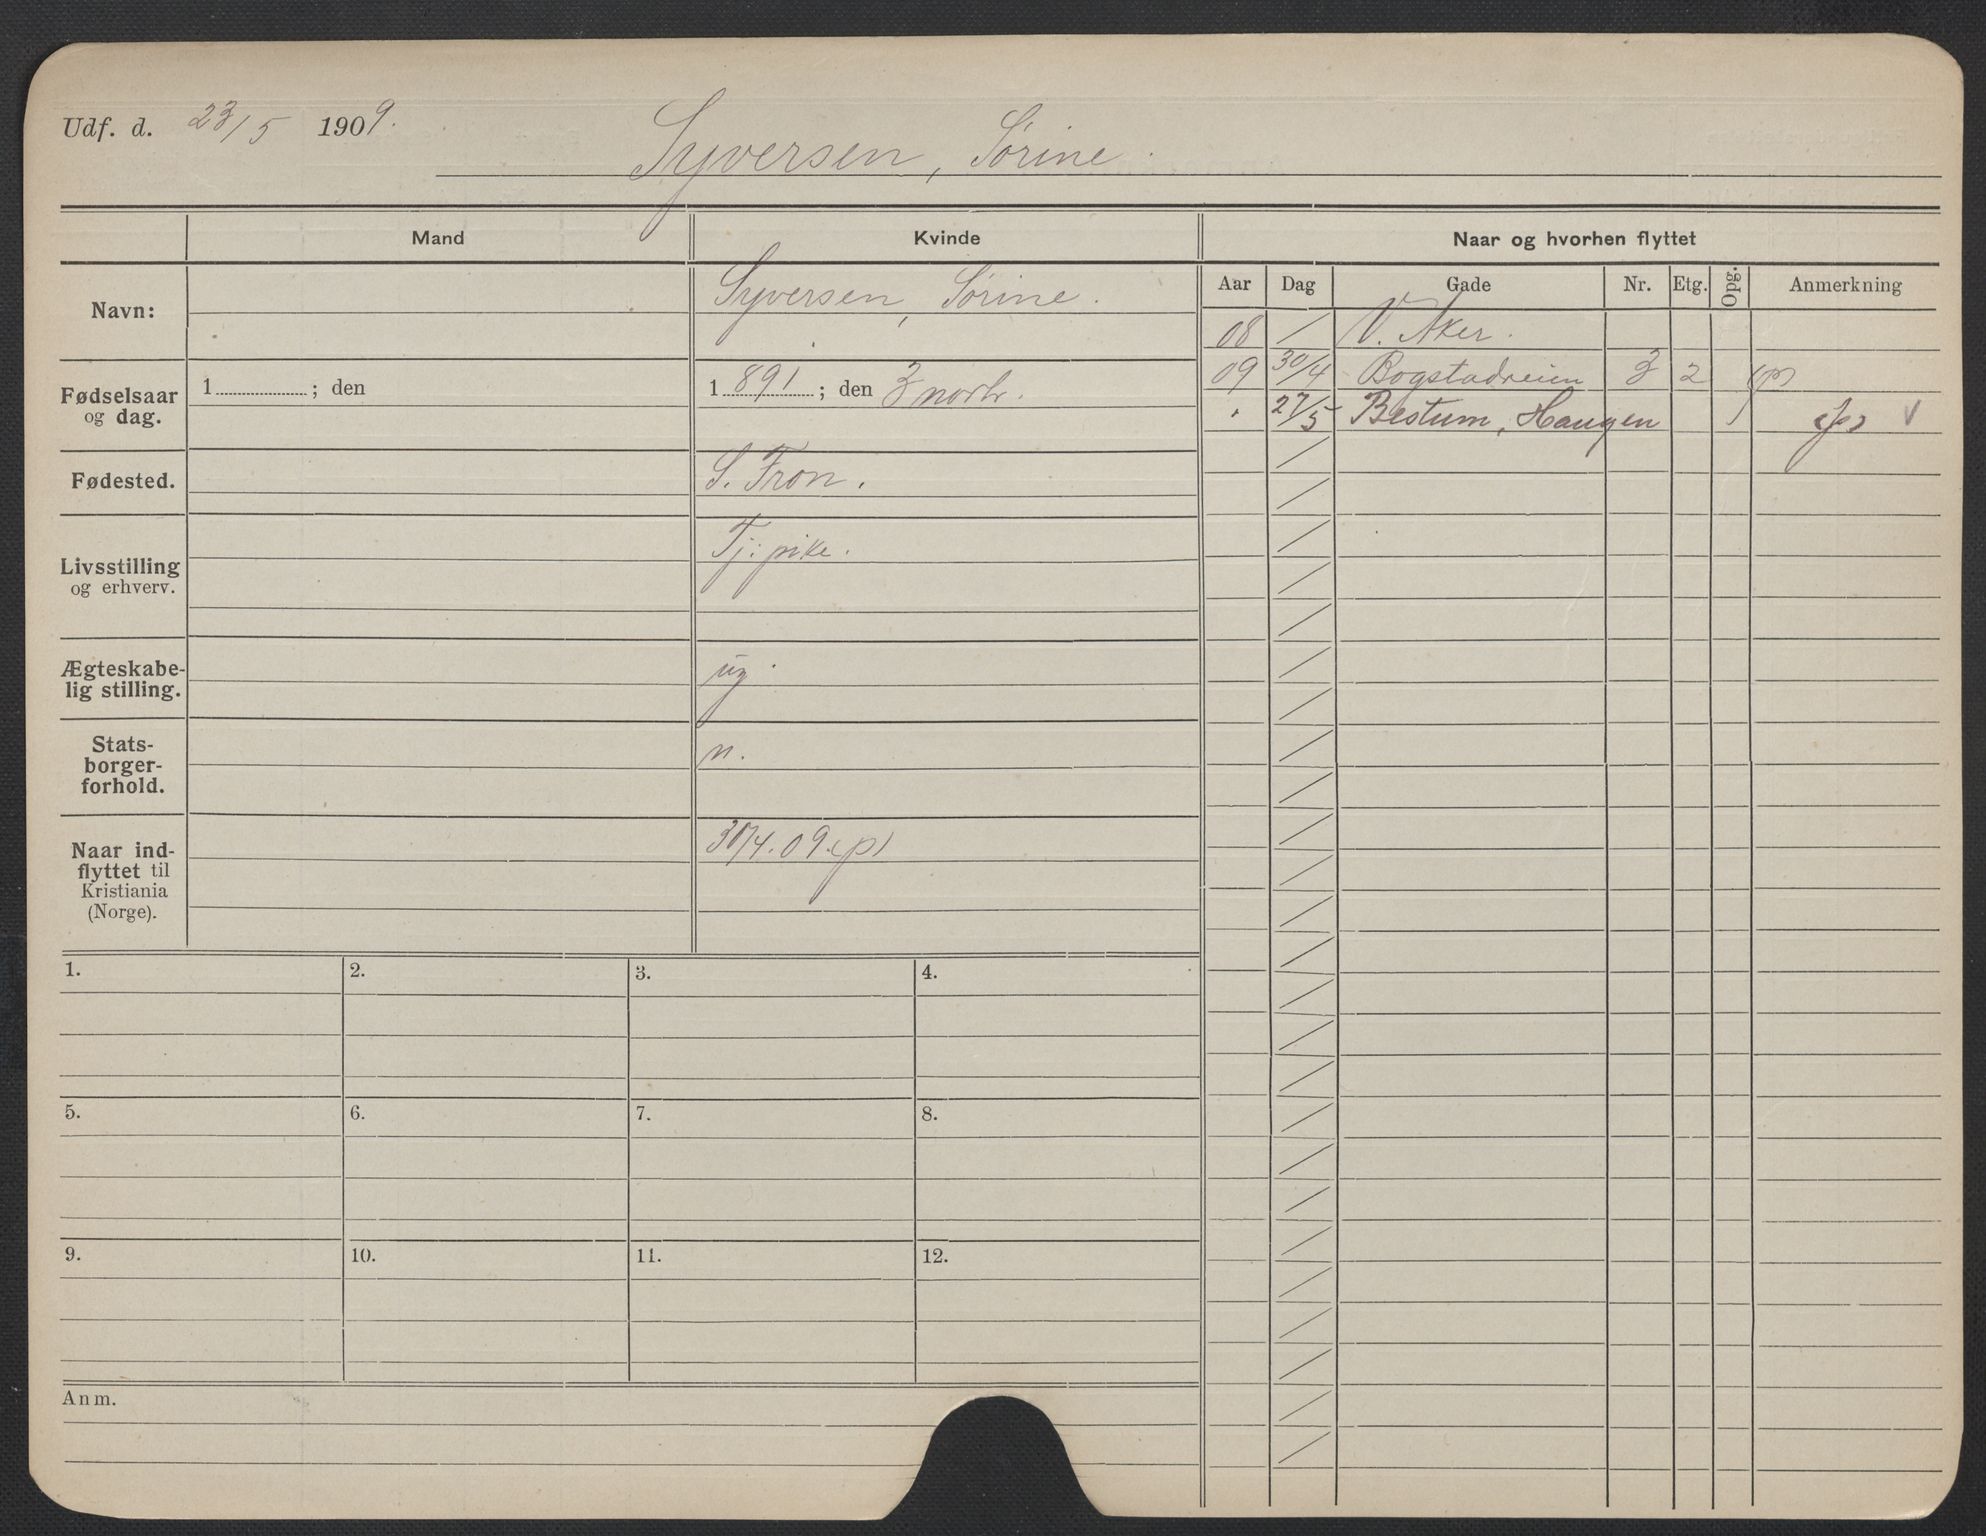 Udf. d. 23/5 1909.
Syversen, Sørine.
Mand
Kvinde
Naar og hvorhen flyttet
Aar Dag Gade Nr. Etg. Opg. Anmerkning
Navn:
Syversen, Sørine.
08 / V. Aker.
09 30/4 Bogstadveien 3 2 (p)
" 27/5 Bestum, Haugen (p) V
Fødselsaar
og dag.
1 ; den
1891 ; den 3 novbr.
Fødested.
S. Fron.
Livsstilling
og erhverv.
Tj: pike.
Ægteskabe-
lig stilling.
ug.
Stats-
borger-
forhold.
n.
Naar ind-
flyttet til
Kristiania
(Norge).
30/4.09.(p)
1. 2. 3. 4.
5. 6. 7. 8.
9. 10. 11. 12.
Anm.